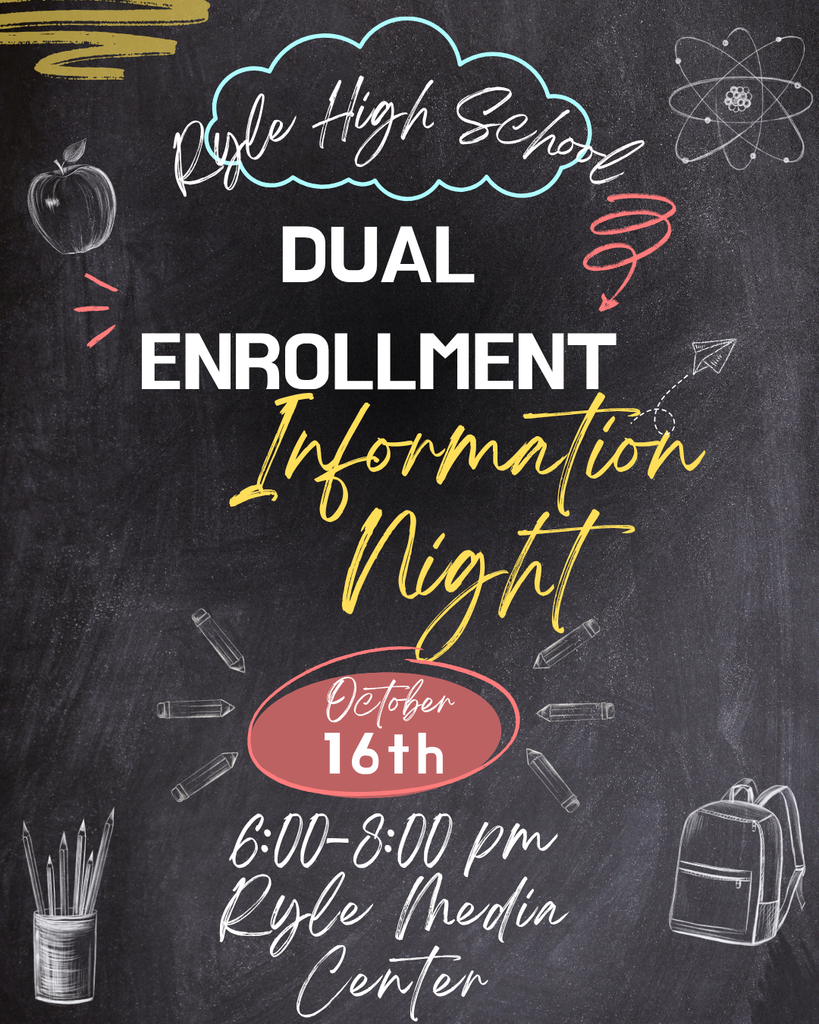 Ryle High School
DUAL
ENROLLMENT
Information
Night
October
16th
6:00-8:00 pm
Ryle Media
Center